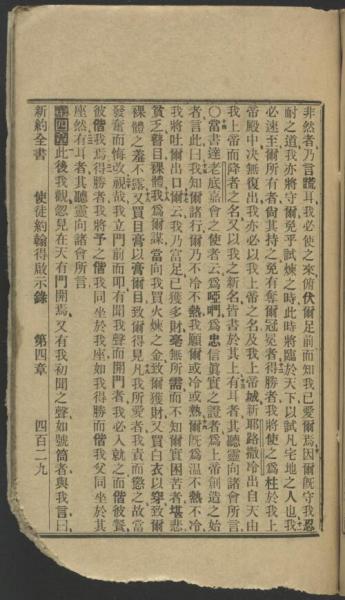 非然者乃言謊耳我必使之來俯伏爾足前而知我已愛爾焉因爾旣守我忍
耐之道我亦將守爾免乎試煉之時此時將臨於天下以試凡宅地之人也我
必速至爾所有者尙其持之免有奪爾冠冕者得勝者我將使之爲柱於我上
帝殿中決無復出我亦必以我上帝之名及我上帝城新耶路撒冷出自天由
我上帝而降者之名又以我之新名皆書於其上有耳者其聽靈向諸會所言
〇當書達老底嘉會之使者云爲啞們爲忠信眞實之證者爲上帝創造之始
者言此曰我知爾諸行爾乃不冷不熱我願爾或冷或熱爾旣爲溫不熱不冷
我將吐爾出口爾云我乃富足已獲多財毫無所需而不知爾實困苦者堪悲
貧乏瞽目裸體我爲爾謀當向我買火煉之金致爾獲財又買白衣以穿致爾
裸體之羞不露又買目膏以膏爾目致爾得見凡我所愛者我責而懲之故當
發奮而悔改視哉我立門前而叩有聞我聲而開門者我必入就之而偕彼餐
彼偕我焉得勝者我將予之偕我同坐於我座如我得勝而偕我父同坐於其
座然有耳者其聽靈向諸會所言
第四章此後我觀忽見在天有門開焉又有我初聞之聲如號筒者與我言曰
新約全書 使徒約翰得啟示錄 第四章 四百二九